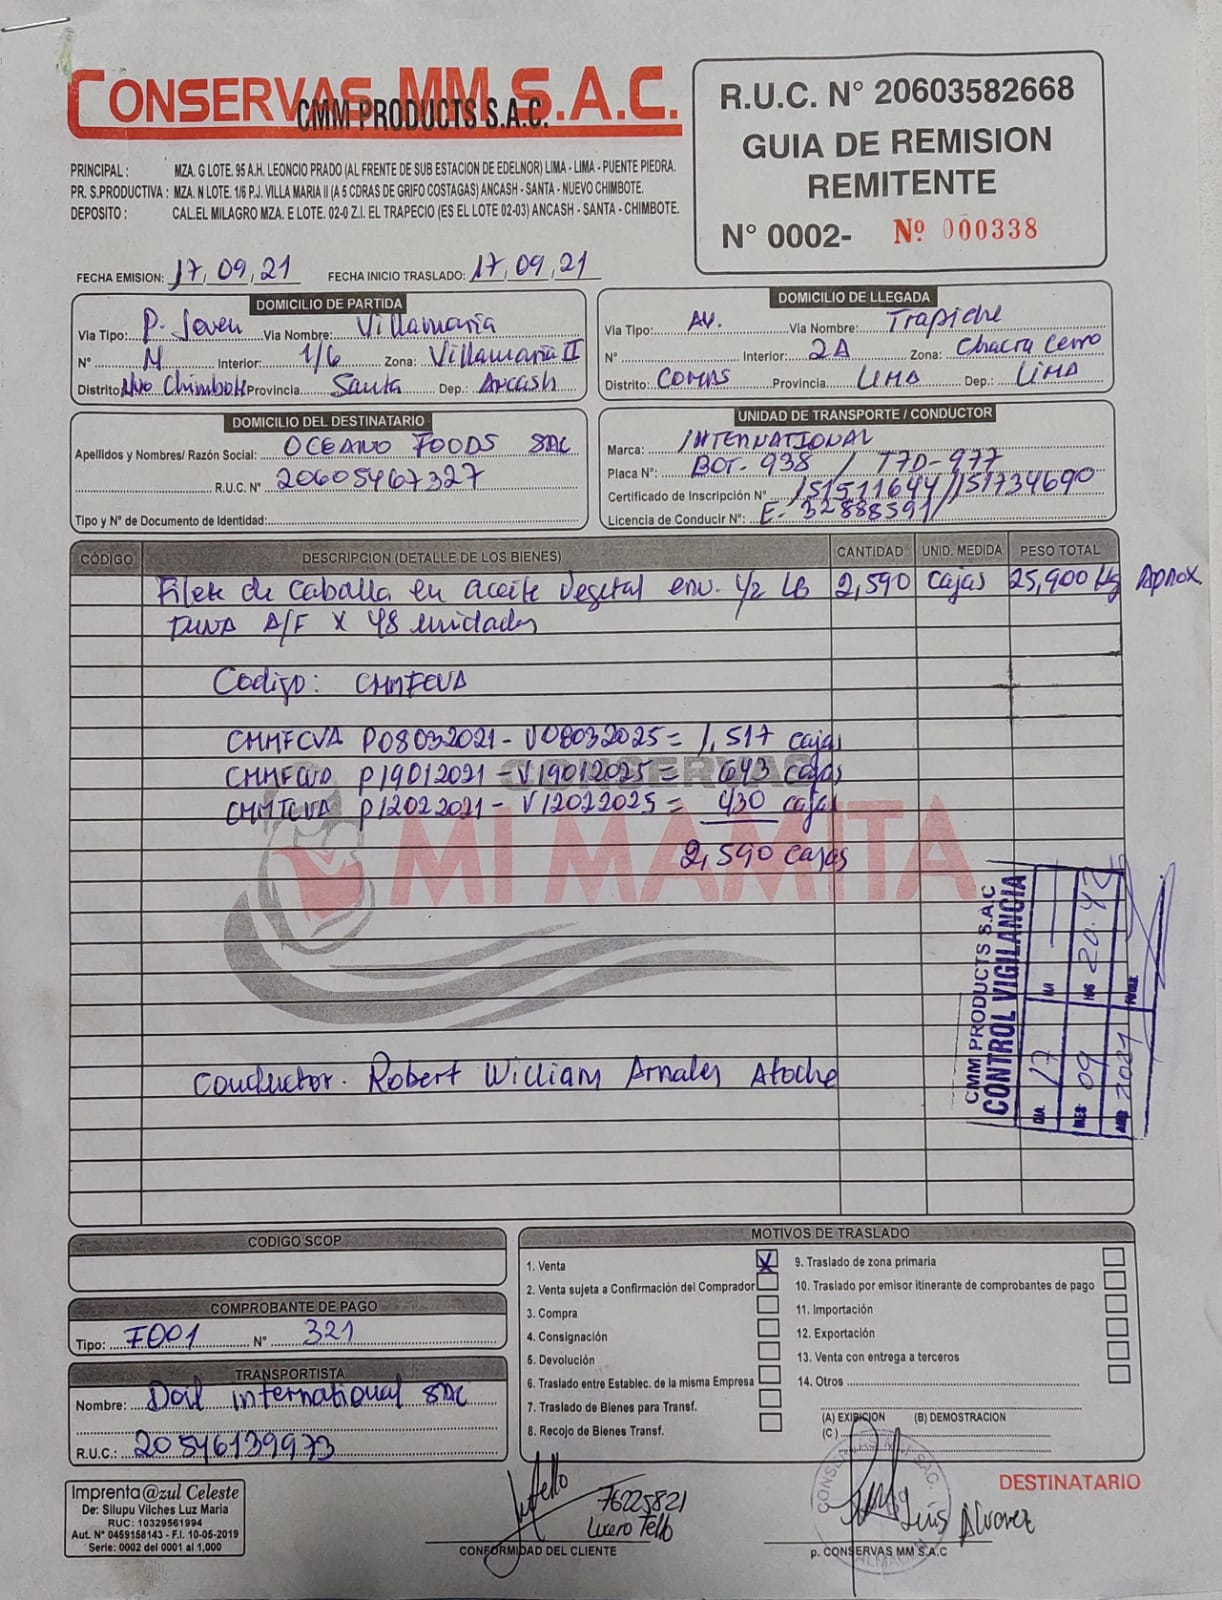 CONSERVAS MM S.A.C.
CMM PRODUCTS S.A.C.
PRINCIPAL : MZA. G LOTE. 95 A.H. LEONCIO PRADO (AL FRENTE DE SUB ESTACION DE EDELNOR) LIMA - LIMA - PUENTE PIEDRA.
PR. S.PRODUCTIVA : MZA. N LOTE. 1/6 P.J. VILLA MARIA II (A 5 CDRAS DE GRIFO COSTAGAS) ANCASH - SANTA - NUEVO CHIMBOTE.
DEPOSITO : CAL.EL MILAGRO MZA. E LOTE. 02-0 Z.I. EL TRAPECIO (ES EL LOTE 02-03) ANCASH - SANTA - CHIMBOTE.
R.U.C. N° 20603582668
GUIA DE REMISION
REMITENTE
N° 0002- Nº 000338
FECHA EMISION: 17, 09, 21 FECHA INICIO TRASLADO: 17, 09, 21
DOMICILIO DE PARTIDA
Via Tipo: P. Joven Via Nombre: Villamaria
N° N Interior: 1/6 Zona: Villamaria II
Distrito: Nvo Chimbote Provincia Santa Dep.: Ancash
DOMICILIO DE LLEGADA
Via Tipo: AV. Via Nombre: Trapiche
N° Interior: 2A Zona: Chacra Cerro
Distrito: COMAS Provincia LIMA Dep.: LIMA
DOMICILIO DEL DESTINATARIO
Apellidos y Nombres/ Razón Social: OCEANO FOODS SAC
R.U.C. N° 20605467327
Tipo y N° de Documento de Identidad:
UNIDAD DE TRANSPORTE / CONDUCTOR
Marca: INTERNATIONAL
Placa N°: BOT-938 / T7D-977
Certificado de Inscripción N° 151511644 / 151734690
Licencia de Conducir N°: E-32888591
CÓDIGO DESCRIPCION (DETALLE DE LOS BIENES) CANTIDAD UNID. MEDIDA PESO TOTAL
Filete de Caballa en aceite Vegetal env. 1/2 LB 2,590 cajas 25,900 Kg Aprox.
TUNA A/F X 48 unidades
Codigo: CMMFCVA
CMMFCVA P08032021 - V08032025 = 1,517 cajas
CMMFCVA P19012021 - V19012025 = 643 cajas
CMMFCVA P12022021 - V12022025 = 430 cajas
2,590 cajas
CONSERVAS
MI MAMITA
CMM PRODUCTS S.A.C
CONTROL VIGILANCIA
DIA 17
MES 09 HRS 20:42
AÑO 2021
Conductor. Robert William Arnales Atoche
CODIGO SCOP
COMPROBANTE DE PAGO
Tipo: F001 N° 321
TRANSPORTISTA
Nombre: Doil International SAC
R.U.C.: 20546139973
MOTIVOS DE TRASLADO
1. Venta X
2. Venta sujeta a Confirmación del Comprador
3. Compra
4. Consignación
5. Devolución
6. Traslado entre Establec. de la misma Empresa
7. Traslado de Bienes para Transf.
8. Recojo de Bienes Transf.
9. Traslado de zona primaria
10. Traslado por emisor itinerante de comprobantes de pago
11. Importación
12. Exportación
13. Venta con entrega a terceros
14. Otros
(A) EXIBICION (B) DEMOSTRACION
(C)
Imprenta @zul Celeste
De: Silupu Vilches Luz Maria
RUC: 10329561994
Aut. N° 0459158143 - F.I. 10-05-2019
Serie: 0002 del 0001 al 1,000
76225821
Lucero Tello
CONFORMIDAD DEL CLIENTE
Luis Alvarez
p. CONSERVAS MM S.A.C
DESTINATARIO